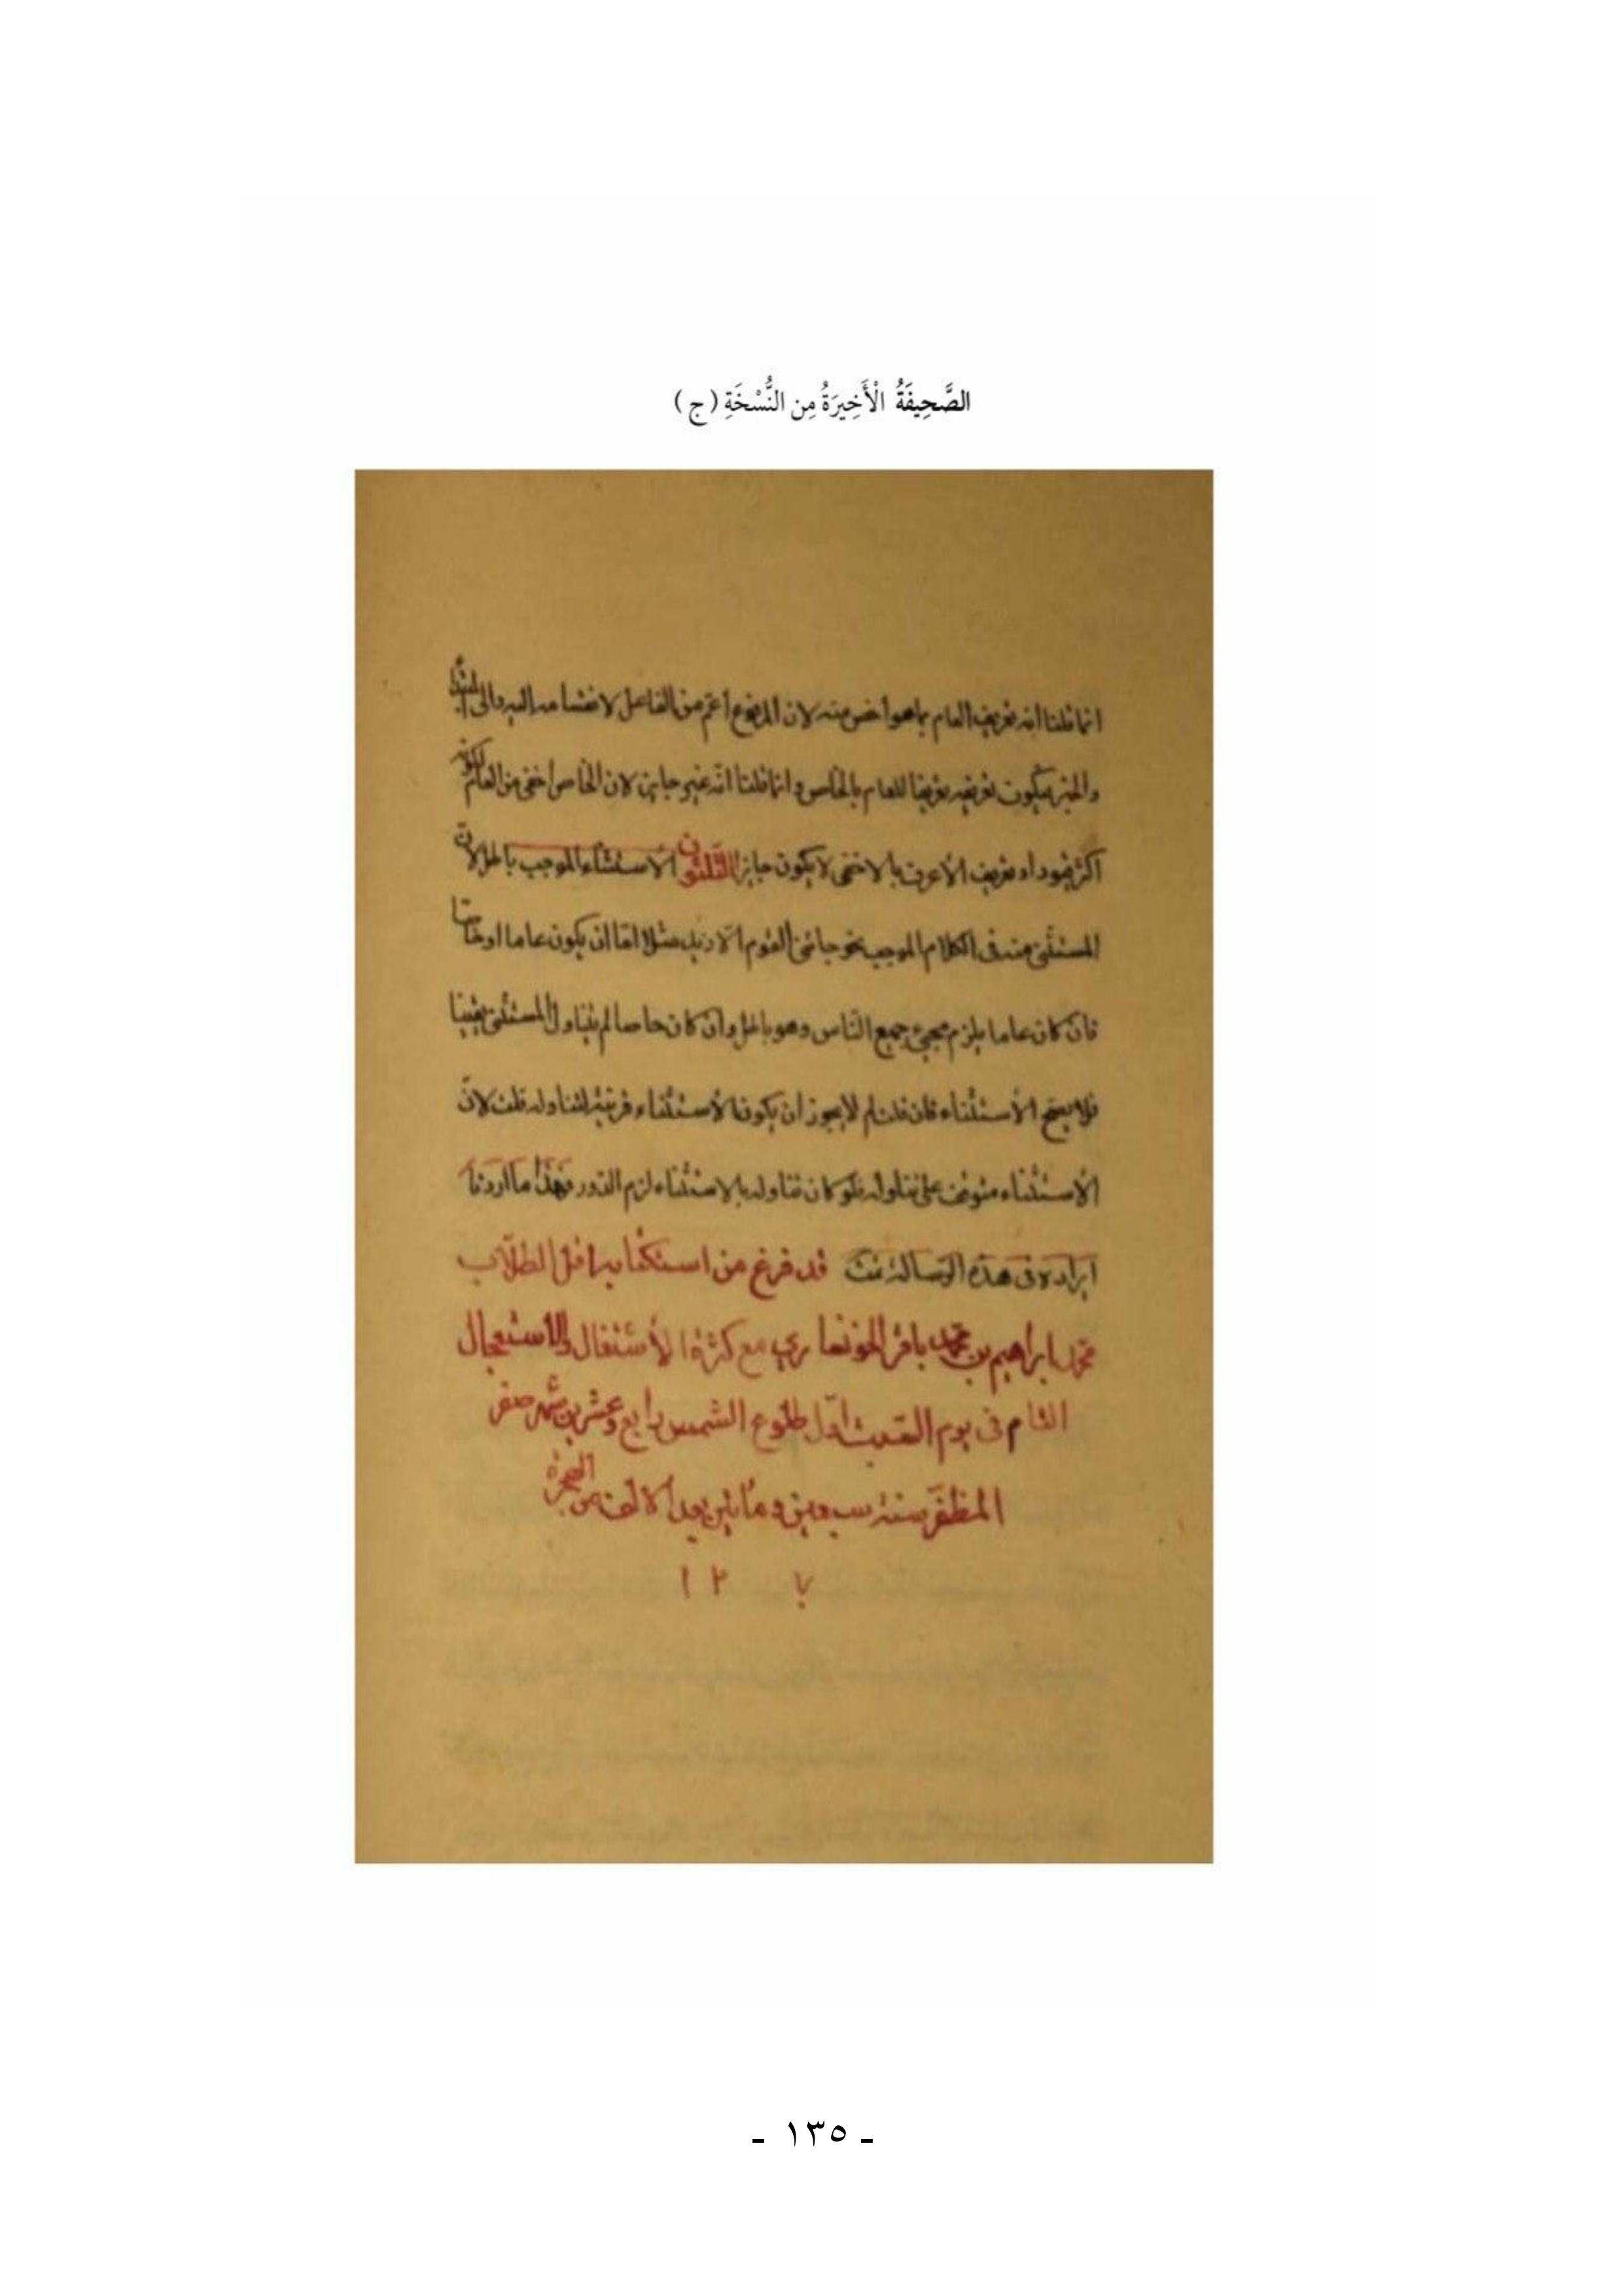 الصَّحِيفَةُ الْأَخِيرَةُ مِن النُّسْخَةِ (ج)
انما قلنا انه تعريف العام بما هو اخص منه لان المرفوع اعم من الفاعل لانقسامه اليه والى المبتدأ
والخبر فيكون تعريفه تعريفا للعام بالخاص وانما قلنا انّه غير جايز لان الخاص اخفى من العام لكونه
اكثر قيودا وتعريف الأعرف بالاخفى لا يكون جايزا الثلثون الاستثناء الموجب باطل لان
المستثنى منه فى الكلام الموجب نحو جائنى القوم الا زيد مثلا امّا ان يكون عاما او خاصا
فان كان عاما يلزم مجىء جميع النّاس وهو باطل وان كان خاصا لم يتناول المستثنى يقينا
فلا يصح الأستثناء فان قلت لم لا يجوز ان يكون الأستثناء قرينة لتناوله قلت لانّ
الأستثناء متوقف على تناوله فلو كان تناوله بالاستثناء لزم الدور فهذا ما اردنا
ايراده فى هذه الرسالة تمت قد فرغ من استكتابه اقل الطلّاب
محمد ابراهيم بن محمد باقر الخونسارى مع كثرة الأشتغال والأستعجال
التام فى يوم السبت اوّل طلوع الشمس رابع وعشرين شهر صفر
المظفّر سنة سبعين ومأتين بعد الالف من الهجرة
١٢ ٧
- ١٣٥ -